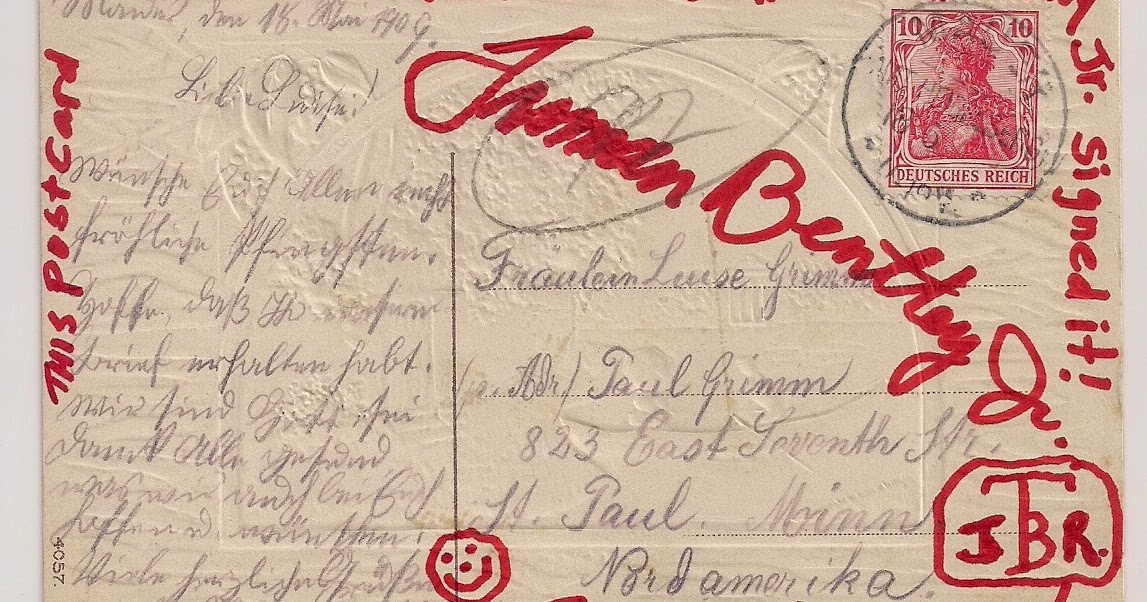 den 18. Mai 1909.
Liebe Luise!
Wünsche Euch Allen recht
fröhliche Pfingsten.
Hoffe, daß Ihr meinen
Brief erhalten habt.
Wir sind Gott sei
Dank Alle gesund,
was wir auch bei Euch
hoffen u wünschen.
Viele herzliche Grüße
4057
THIS POSTCARD
Jr. Signed it!
10 10
DEUTSCHES REICH
Truman Bentley Jr.
Fräulein Luise Grimm
(p. Adr) Paul Grimm
823 East Seventh Str.
St. Paul. Minn
Nordamerika.
TBJR.